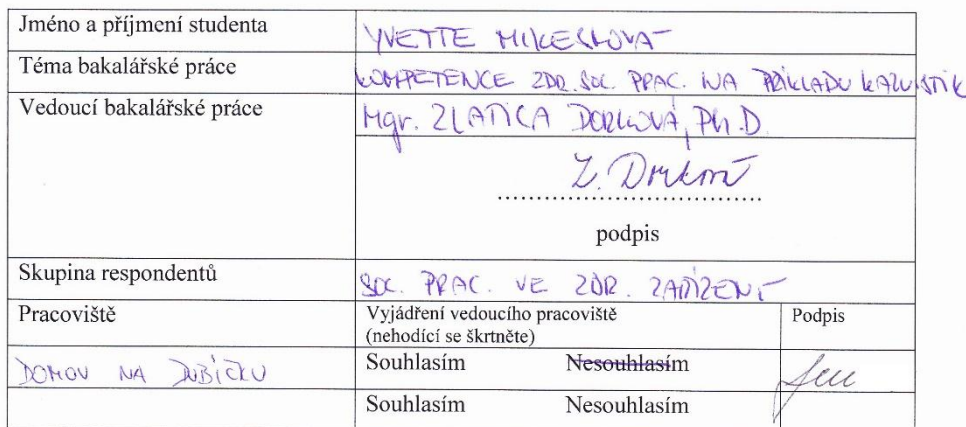 Jméno a příjmení studenta
YVETTE MIKESKOVÁ
Téma bakalářské práce
KOMPETENCE ZDR. SOC. PRAC. NA PŘÍKLADU KAZUISTIK
Vedoucí bakalářské práce
Mgr. ZLATICA DORKOVÁ, Ph.D.
Z. Dorková
podpis
Skupina respondentů
SOC. PRAC. VE ZDR. ZAŘÍZENÍ
Pracoviště
Vyjádření vedoucího pracoviště
Podpis
(nehodící se škrtněte)
DOMOV NA DUBÍČKU
Souhlasím Nesouhlasím
Souhlasím Nesouhlasím